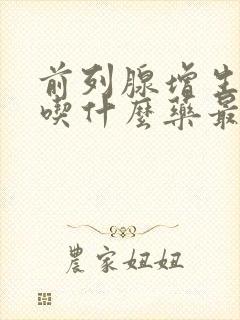 前列腺增生
喫什麼藥最
農家妞妞